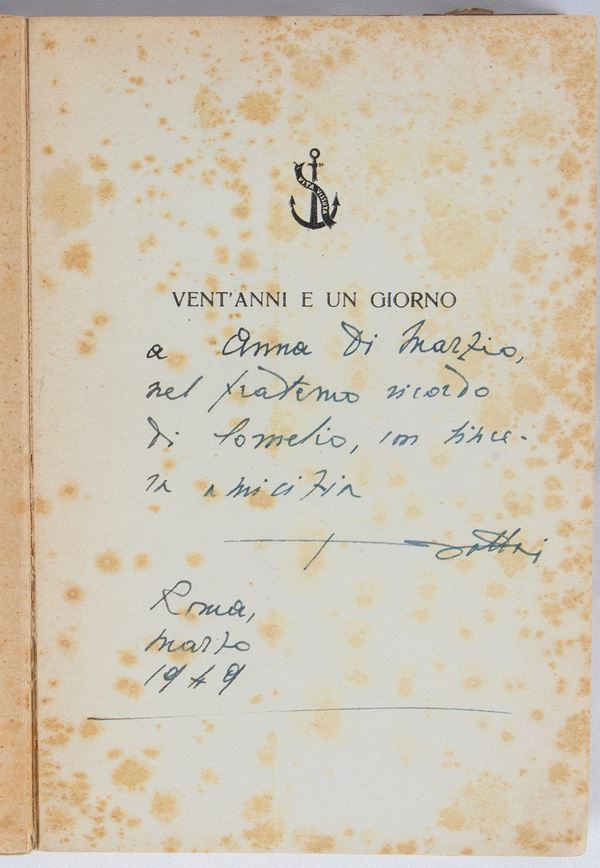 VENT'ANNI E UN GIORNO
a Anna Di Marzio,
nel fraterno ricordo
di Cornelio, con since-
ra amicizia
Bottai
Roma,
marzo
1949